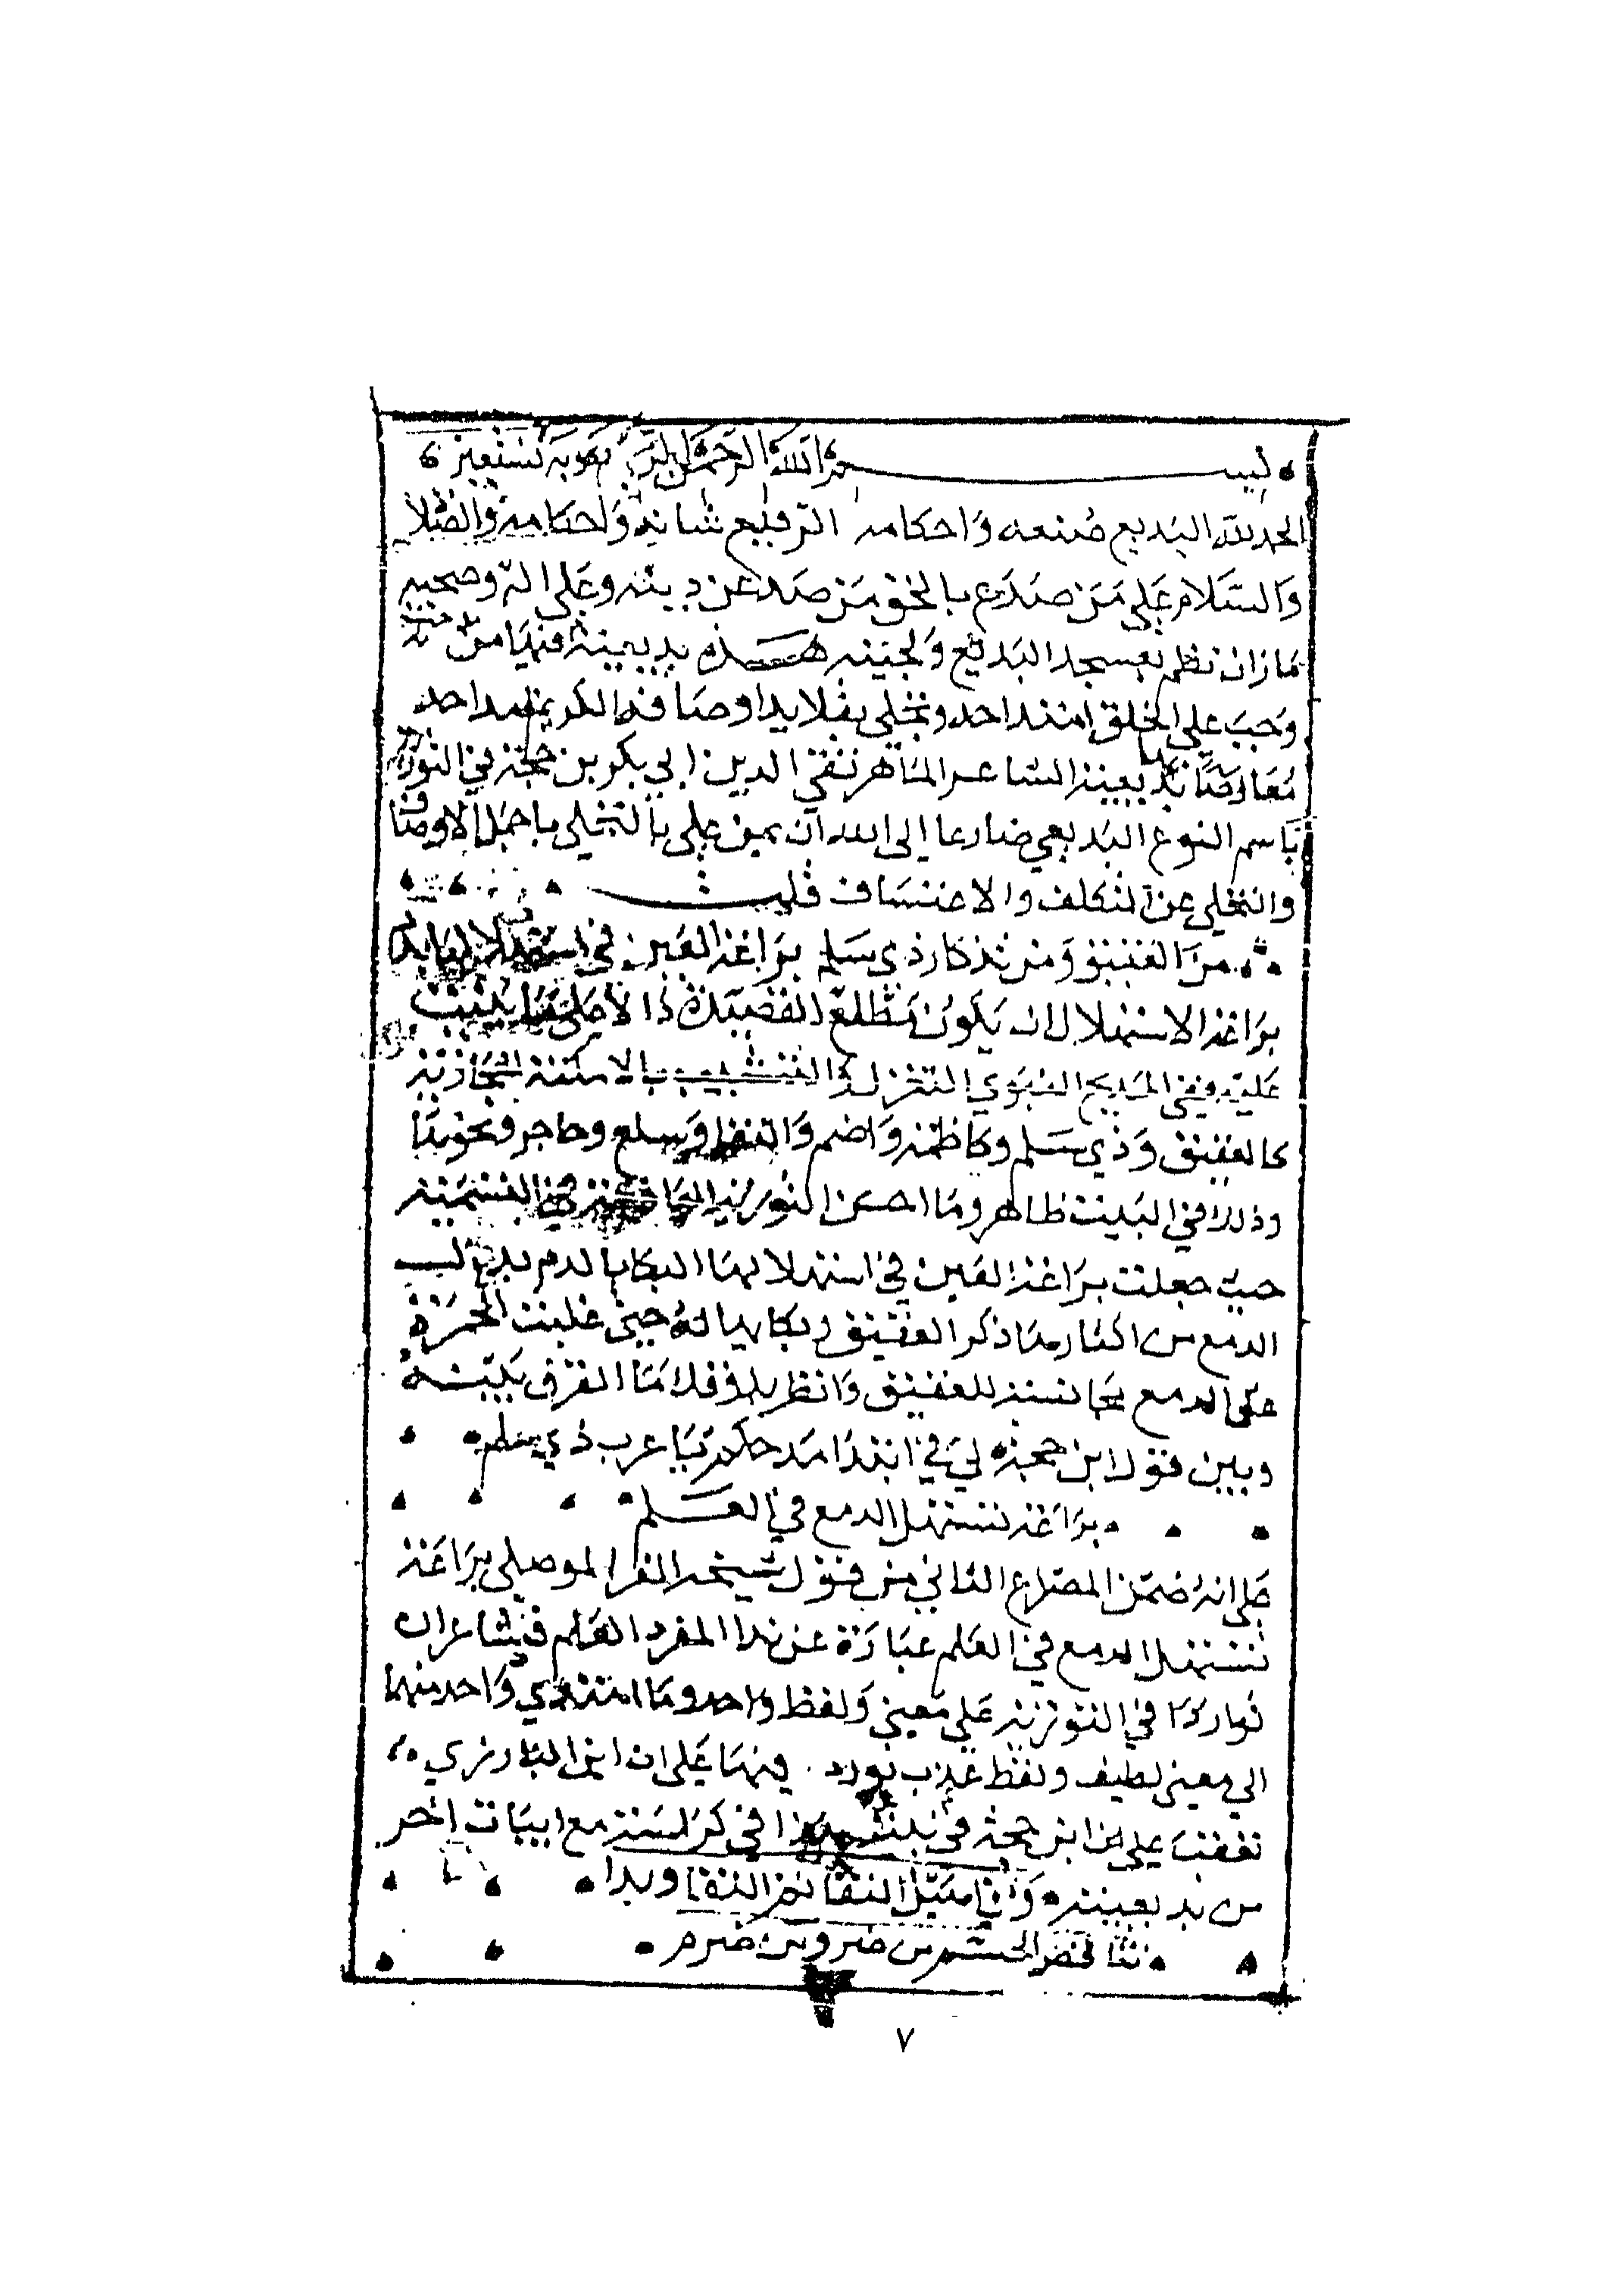 بسم الله الرحمن الرحيم وبه نستعين
الحمد لله البديع صنعه واحكامه الرفيع شانه واحكامه والصلاة
والسلام على من صدع بالحق من صد عن دينه وعلى اله وصحبه
ما زان نظم بعسجد البديع ولجينه هذه بديعية فيها من
وجب على الخلق امتداحه وتحلى بقلايد اوصافه الكريمة مداحه
معارضا بديعية الشاعر الماهر تقي الدين ابي بكر بن حجة في التورية
باسم النوع البديعي ضارعا الى الله ان يمن علي بالتحلي باجمل الاوصاف
والتخلي عن التكلف والاعتساف قلت
من العقيق ومن تذكار ذي سلم براعة العين في استهلالها بدم
براعة الاستهلال ان يكون مطلع القصيدة دالا على ما بنيت
عليه وفي المديح النبوي التغزل والتشبيب بالامكنة الحجازية
كالعقيق وذي سلم وكاظمة واضم والنقا وسلع وحاجر ونحوها
وذلك في البيت ظاهر وما احسن التورية في التسمية
حيث جعلت براعة العين في استهلالها البكا بالدم بدل
الدمع من اكثارها ذكر العقيق وبكايها له حتى غلبت الحمرة
على الدمع مجانسة للعقيق وانظر بذوقك ما الفرق بينه
وبين قول ابن حجة لي في ابتدا مدحكم يا عرب ذي سلم
براعة تستهل الدمع في العلم
على انه ضمن المصراع الثاني من قول شيخه العز الموصلي براعة
تستهل الدمع في العلم عبارة عن ندا المفرد العلم فشاعران
تواردا في التورية على معنى ولفظ واحد وما اهتدى واحد منهما
الى معنى لطيف ولفظ عذب يورد فيهما على ان ابن البارزي
تعقب على ابن حجة في بيته هذا في كراسة مع ابيات اخر
من بديعيته وانا ميل النقا ثم النقا وبدا